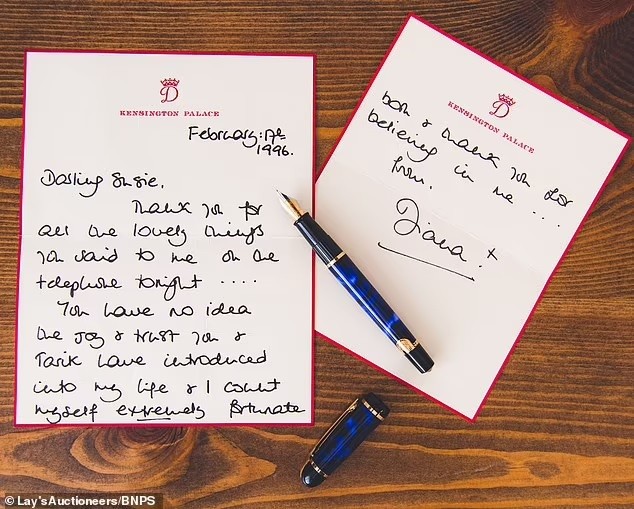 D
KENSINGTON PALACE
February: 17th
1996.
Darling Susie,
Thank you for
all the lovely things
you said to me on the
telephone tonight ....
You have no idea
the joy & trust you &
Tarik have introduced
into my life & I count
myself extremely fortunate
D
KENSINGTON PALACE
both & thank you for
believing in me ...
from,
Diana. x
©Lay'sAuctioneers/BNPS